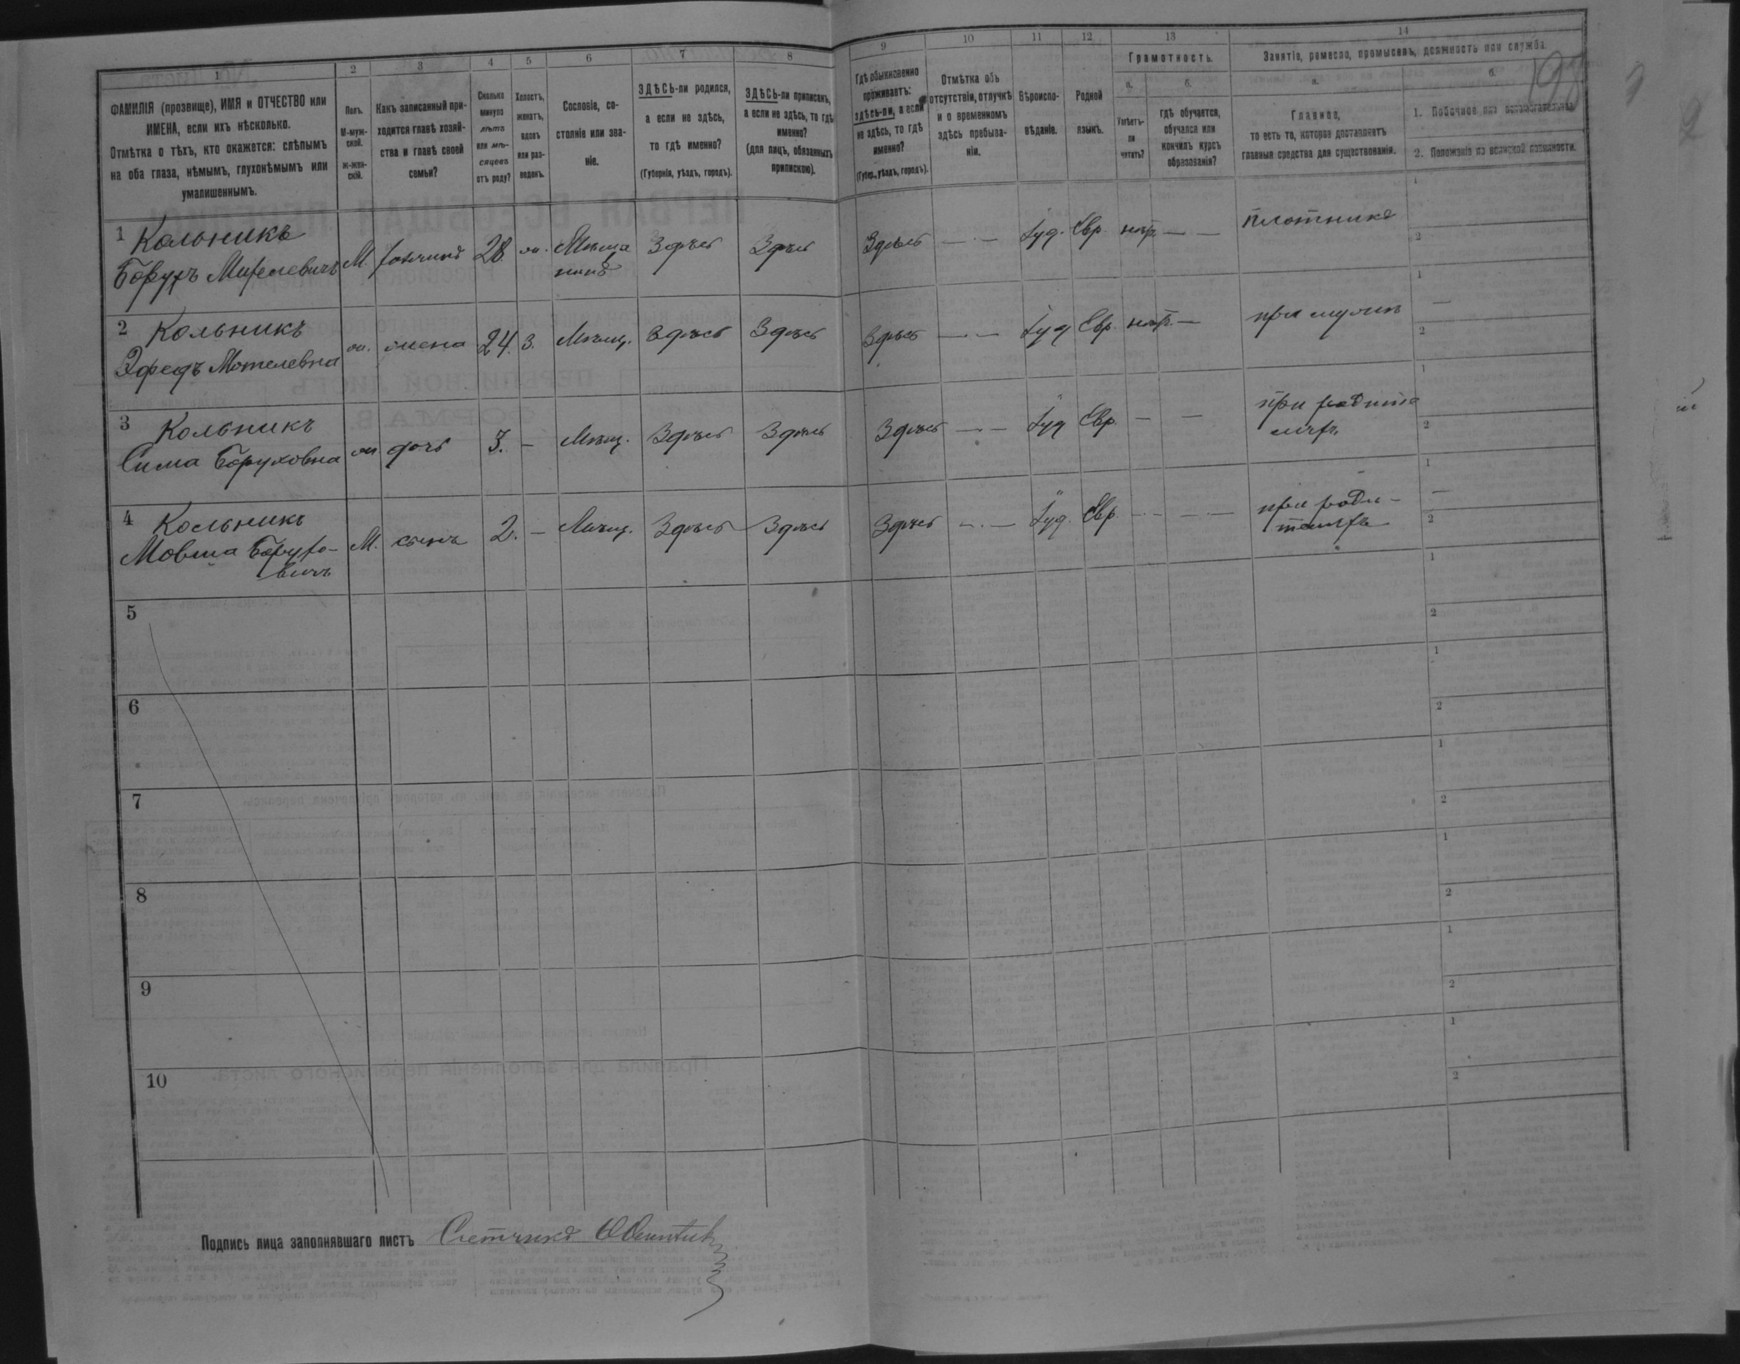 1 2 3 4 5 6 7 8 9 10 11 12 13 14
ФАМИЛІЯ (прозвище), ИМЯ и ОТЧЕСТВО или
ИМЕНА, если ихъ нѣсколько.
Отмѣтка о тѣхъ, кто окажется: слѣпымъ
на оба глаза, нѣмымъ, глухонѣмымъ или
умалишеннымъ.
Полъ.
М-муж-
ской.
Ж-жен-
скій.
Какъ записанный при-
ходится главѣ хозяй-
ства и главѣ своей
семьи?
Сколько
минуло
лѣтъ
или мѣ-
сяцевъ
отъ роду?
Холостъ,
женатъ,
вдовъ
или раз-
веденъ.
Сословіе, со-
стояніе или зва-
ніе.
ЗДѢСЬ-ли родился,
а если не здѣсь,
то гдѣ именно?
(Губернія, уѣздъ, городъ).
ЗДѢСЬ-ли приписанъ,
а если не здѣсь, то гдѣ
именно?
(для лицъ, обязанныхъ
припискою).
Гдѣ обыкновенно
проживаетъ:
здѣсь-ли, а если
не здѣсь, то гдѣ
именно?
(Губер., уѣздъ, городъ).
Отмѣтка объ
отсутствіи, отлучкѣ
и о временномъ
здѣсь пребыва-
ніи.
Вѣроиспо-
вѣданіе.
Родной
языкъ.
Грамотность.
а. б.
Умѣетъ-
ли
читать?
гдѣ обучается,
обучался или
кончилъ курсъ
образованія?
Занятія, ремесло, промыселъ, должность или служба.
а. б.
Главное,
то есть то, которое доставляетъ
главныя средства для существованія.
1. Побочное или вспомогательное.
2. Положеніе по воинской повинности.
1 Кольникъ
Борухъ М. 28 Мѣща
нинъ Здѣсь Здѣсь Здѣсь — Іуд. Евр. — — плотникъ
1
2
2 Кольникъ
Мотелевна жена 24 З. Мѣщ. Здѣсь Здѣсь Здѣсь — Іуд Евр. — при мужѣ
1
2
3 Кольникъ
Сима Боруховна дочь 3. — Мѣщ. Здѣсь Здѣсь Здѣсь — Іуд Евр. — — при родите
ляхъ
1
2
4 Кольникъ
Мовша Борухо-
вичъ М. сынъ 2. — Мѣщ. Здѣсь Здѣсь Здѣсь — Іуд. Евр. — — при роди-
теляхъ
1
2
5
1
2
6
1
2
7
1
2
8
1
2
9
1
2
10
1
2
Подпись лица заполнявшаго листъ Счетчикъ